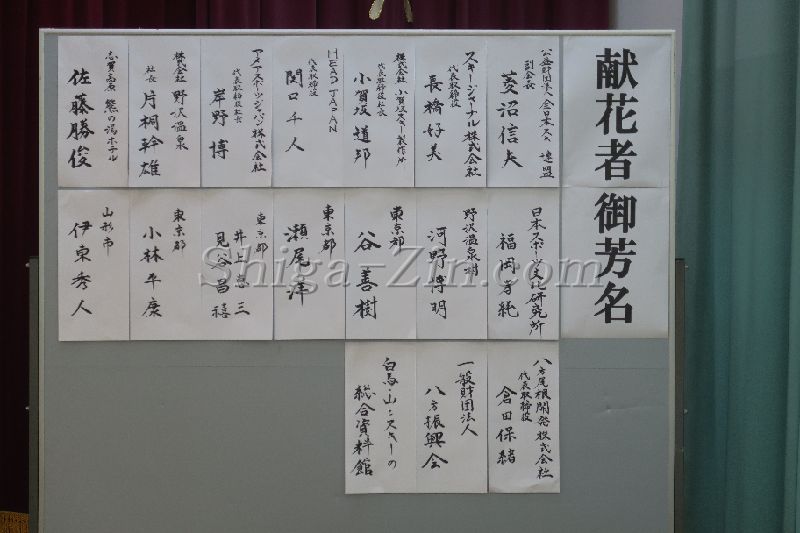 献花者 御芳名
公益財団法人 全日本スキー連盟
副会長
菱沼信夫
スキージャーナル株式会社
代表取締役
長橋好美
株式会社 小賀坂スキー製作所
代表取締役社長
小賀坂道邦
HEAD JAPAN
代表取締役
関口千人
アメアスポーツジャパン株式会社
代表取締役社長
岸野 博
株式会社 野沢温泉
社長
片桐幹雄
志賀高原 熊の湯ホテル
佐藤勝俊
日本スポーツ文化研究所
福岡孝純
野沢温泉村
河野博明
東京都
谷 善樹
東京都
瀬尾 洋
東京都
井上恵三
見谷昌禧
東京都
小林平康
山形市
伊東秀人
八方尾根開発株式会社
代表取締役
倉田保緒
一般財団法人
八方振興会
白馬・山とスキーの
総合資料館
Shiga-Zin.com